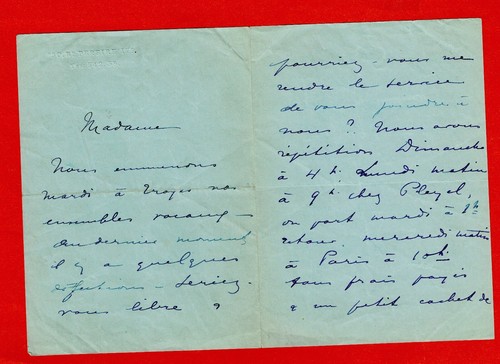 Madame
Nous emmenons
mardi à Troyes nos
ensembles vocaux -
Au dernier moment
il y a quelques
défections - Seriez-
vous libre ?
pourriez-vous me
rendre le service
de vous joindre à
nous ? Nous avons
répétition Dimanche
à 4h. Lundi matin
à 9h. chez Pleyel,
on part mardi à 1h
retour mercredi matin
à Paris à 10h.
tous frais payés
& un petit cachet de